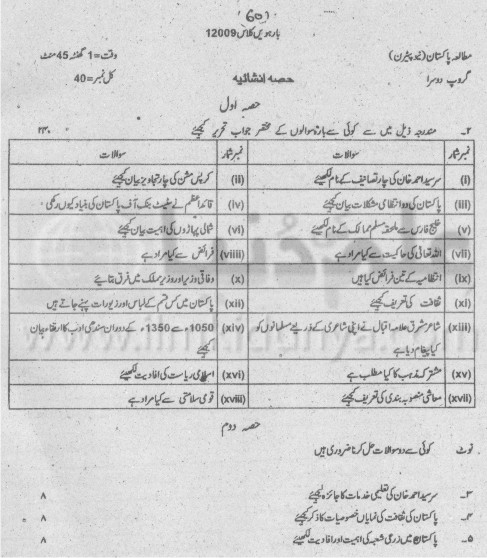 (60)
بارہویں کلاس 12009
مطالعہ پاکستان (نیو پیٹرن) وقت=1 گھنٹہ 45 منٹ
گروپ دوسرا حصہ انشائیہ کل نمبر=40
حصہ اول
۲۔ مندرجہ ذیل میں سے کوئی سے بارہ سوالوں کے مختصر جواب تحریر کیجئے ۲۴۔
نمبر شمار سوالات نمبر شمار سوالات
(i) سرسید احمد خان کی چار تصانیف کے نام لکھیئے (ii) کرپس مشن کی چار تجاویز بیان کیجئے
(iii) پاکستان کی دو انتظامی مشکلات بیان کیجئے (iv) قائد اعظم نے سٹیٹ بنک آف پاکستان کی بنیاد کیوں رکھی
(v) خلیج فارس سے ملحقہ مسلم ممالک کے نام لکھیئے (vi) شمالی پہاڑوں کی اہمیت بیان کیجئے
(vii) اللہ تعالٰی کی حاکمیت سے کیا مراد ہے (viiii) فرائض سے کیا مراد ہے
(ix) انتظامیہ کے تین فرائض کیا ہیں (x) وفاقی وزیر اور وزیر مملکت میں فرق بتائیے
(xi) ثقافت کی تعریف کیجئے (xii) پاکستان میں کس قسم کے لباس اور زیورات پہنے جاتے ہیں
(xiii) شاعر مشرق علامہ اقبال نے اپنی شاعری کے ذریعے مسلمانوں کو (xiv) 1050ء سے 1350ء کے دوران سندھی ادب کا ارتقاء بیان
کیا پیغام دیا ہے کیجئے
(xv) مشترک مذہب کا کیا مطلب ہے (xvi) اسلامی ریاست کی افادیت لکھیئے
(xvii) معاشی منصوبہ بندی کی تعریف کیجئے (xviii) قومی سلامتی سے کیا مراد ہے
حصہ دوم
نوٹ کوئی سے دو سوالات حل کرنا ضروری ہیں
۳۔ سرسید احمد خان کی تعلیمی خدمات کا جائزہ لیجئے ۸
۴۔ پاکستان کی ثقافت کی نمایاں خصوصیات کا ذکر کیجئے ۸
۵۔ پاکستان میں زرعی شعبہ کی اہمیت اور افادیت لکھیئے ۸